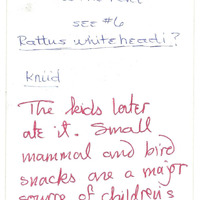 SEE #6
Rattus whiteheadi?
Kniid
The kids later
ate it. Small
mammal and bird
snacks are a major
source of children's